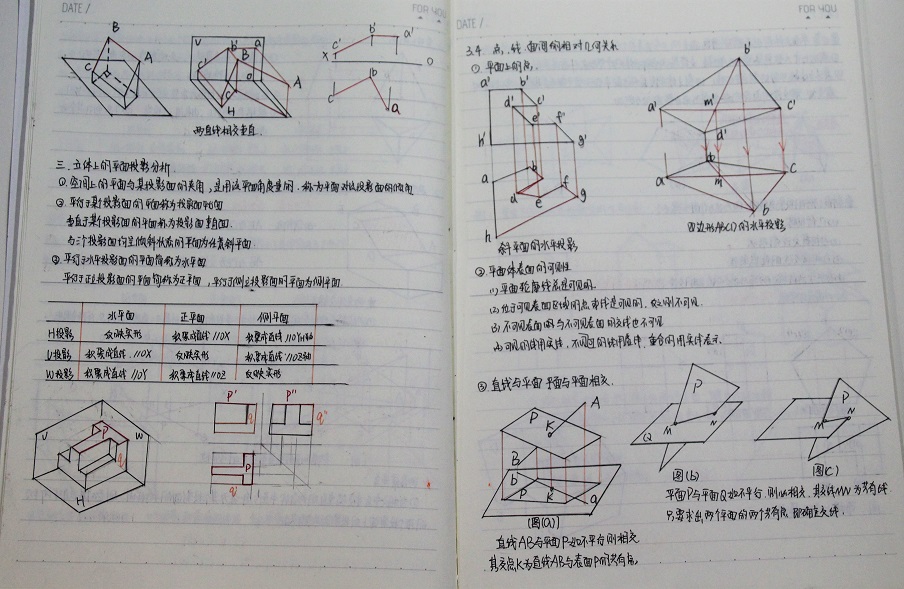 DATE /
FOR YOU
B
A
C
V
b'
a'
c'
B
A
H
X
c'
b'
a'
O
c
b
a
两直线相交垂直
三、立体上的平面投影分析
①空间上的平面与某投影面的夹角,是用该平面角度量的,称为平面对该投影面的倾角
②平行于某投影面的平面称为投影面平行面
垂直于某投影面的平面称为投影面垂直面.
与三个投影面均呈倾斜状态的平面为任意斜平面
③平行于水平投影面的平面简称为水平面
平行于正立投影面的平面简称为正平面,平行于侧立投影面的平面为侧平面
水平面 正平面 侧平面
H投影 反映实形 积聚成直线//OX 积聚成直线//OYH轴
V投影 积聚成直线//OX 反映实形 积聚成直线//OZ轴
W投影 积聚成直线//OY 积聚成直线//OZ 反映实形
V
W
P
q
H
p'
p"
q"
P
q
DATE /
FOR YOU
3.4 点、线、面间的相对几何关系
①平面上的点.
a'
b'
d'
c'
e'
f'
h'
g'
a
b
d
e
f
g
h
斜平面的水平投影
b'
a'
m'
c'
d'
a
m
c
b
四边形ABCD的水平投影
②平面体表面的可见性
(1)平面轮廓线总是可见的.
(2)位于可见表面区域的点、直线是可见的,反之则不可见.
(3)不可见表面的与不可见表面的交线也不可见
③直线与平面 平面与平面相交.
P
A
K
B
b
P
k
a
(图(a))
P
M
N
Q
图(b)
P
M
N
图(c)
直线AB与平面P如不平行则相交
其交点K为直线AB与表面P的共有点.
平面P与平面Q如不平行,则必相交,其交线MN为共有线
只要求出两个平面的两个共有点 即确定交线.